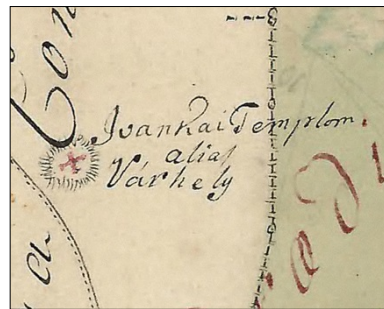 Con
Ivankai Templom
alias
Várhely